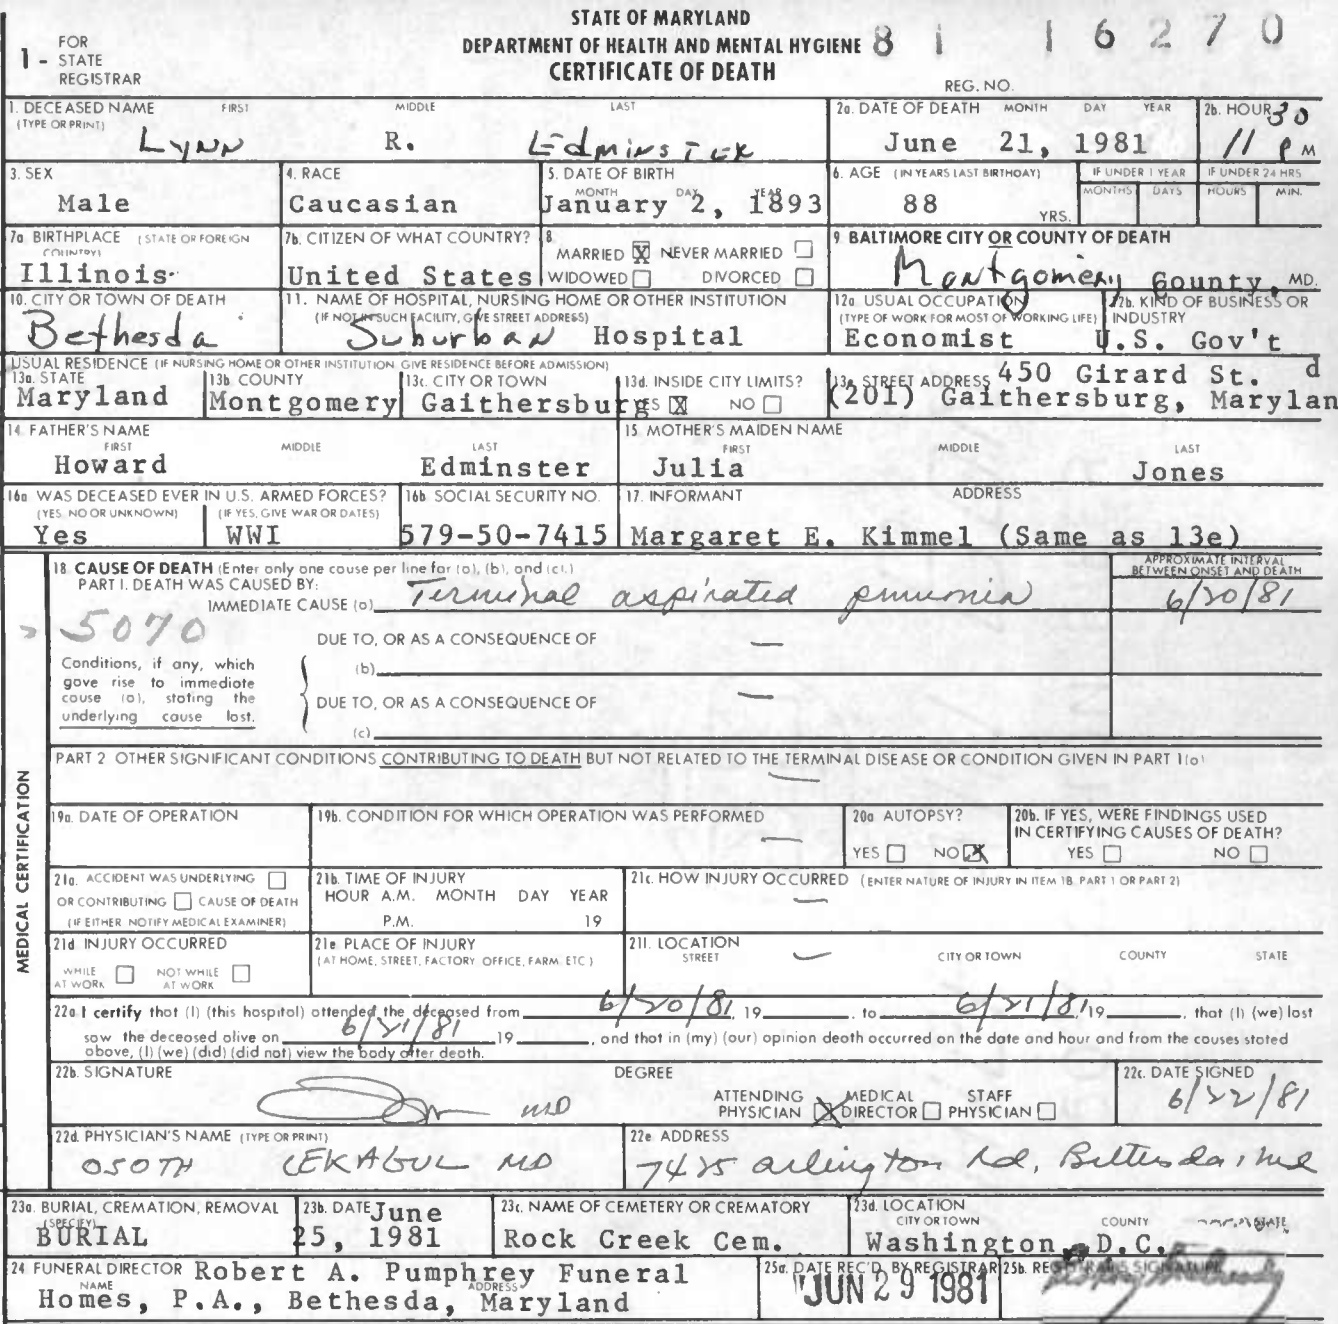 STATE OF MARYLAND
DEPARTMENT OF HEALTH AND MENTAL HYGIENE
CERTIFICATE OF DEATH
1 - FOR STATE REGISTRAR
81 16270
REG. NO.
1. DECEASED NAME (TYPE OR PRINT) FIRST MIDDLE LAST
Lynn R. Edminster
2a. DATE OF DEATH MONTH DAY YEAR
June 21, 1981
2b. HOUR
11 30 P M
3. SEX
Male
4. RACE
Caucasian
5. DATE OF BIRTH MONTH DAY YEAR
January 2, 1893
6. AGE (IN YEARS LAST BIRTHDAY)
88 YRS.
IF UNDER 1 YEAR MONTHS DAYS
IF UNDER 24 HRS HOURS MIN.
7a BIRTHPLACE (STATE OR FOREIGN COUNTRY)
Illinois
7b. CITIZEN OF WHAT COUNTRY?
United States
8. MARRIED X NEVER MARRIED
WIDOWED DIVORCED
9. BALTIMORE CITY OR COUNTY OF DEATH
Montgomery County, MD.
10. CITY OR TOWN OF DEATH
Bethesda
11. NAME OF HOSPITAL, NURSING HOME OR OTHER INSTITUTION
(IF NOT IN SUCH FACILITY, GIVE STREET ADDRESS)
Suburban Hospital
12a. USUAL OCCUPATION (TYPE OF WORK FOR MOST OF WORKING LIFE)
Economist
12b. KIND OF BUSINESS OR INDUSTRY
U.S. Gov't
USUAL RESIDENCE (IF NURSING HOME OR OTHER INSTITUTION GIVE RESIDENCE BEFORE ADMISSION)
13a. STATE
Maryland
13b COUNTY
Montgomery
13c. CITY OR TOWN
Gaithersburg
13d. INSIDE CITY LIMITS?
YES X NO
13e STREET ADDRESS 450 Girard St.
(201) Gaithersburg, Maryland
14. FATHER'S NAME FIRST MIDDLE LAST
Howard Edminster
15. MOTHER'S MAIDEN NAME FIRST MIDDLE LAST
Julia Jones
16a WAS DECEASED EVER IN U.S. ARMED FORCES?
(YES, NO OR UNKNOWN) (IF YES, GIVE WAR OR DATES)
Yes WWI
16b SOCIAL SECURITY NO.
579-50-7415
17. INFORMANT ADDRESS
Margaret E. Kimmel (Same as 13e)
MEDICAL CERTIFICATION
18. CAUSE OF DEATH (Enter only one cause per line for (a), (b), and (c).)
PART I. DEATH WAS CAUSED BY:
IMMEDIATE CAUSE (a) Terminal aspirated pnumonia
APPROXIMATE INTERVAL BETWEEN ONSET AND DEATH
6/20/81
5070
DUE TO, OR AS A CONSEQUENCE OF —
(b)
Conditions, if any, which gave rise to immediate cause (a), stating the underlying cause last.
DUE TO, OR AS A CONSEQUENCE OF —
(c)
PART 2 OTHER SIGNIFICANT CONDITIONS CONTRIBUTING TO DEATH BUT NOT RELATED TO THE TERMINAL DISEASE OR CONDITION GIVEN IN PART 1(a)
—
19a. DATE OF OPERATION
19b. CONDITION FOR WHICH OPERATION WAS PERFORMED
—
20a AUTOPSY?
YES NO X
20b. IF YES, WERE FINDINGS USED IN CERTIFYING CAUSES OF DEATH?
YES NO
21a. ACCIDENT WAS UNDERLYING
OR CONTRIBUTING CAUSE OF DEATH
(IF EITHER, NOTIFY MEDICAL EXAMINER)
21b. TIME OF INJURY
HOUR A.M. MONTH DAY YEAR
P.M. 19
21c. HOW INJURY OCCURRED (ENTER NATURE OF INJURY IN ITEM 18, PART 1 OR PART 2)
—
21d INJURY OCCURRED
WHILE AT WORK NOT WHILE AT WORK
21e PLACE OF INJURY
(AT HOME, STREET, FACTORY, OFFICE, FARM, ETC.)
21f. LOCATION
STREET CITY OR TOWN COUNTY STATE
22a I certify that (I) (this hospital) attended the deceased from 6/20/81, 19 , to 6/21/81, 19 , that (I) (we) last
saw the deceased alive on 6/21/81 19 , and that in (my) (our) opinion death occurred on the date and hour and from the causes stated
above, (I) (we) (did) (did not) view the body after death.
22b. SIGNATURE DEGREE
MD
ATTENDING PHYSICIAN X MEDICAL DIRECTOR STAFF PHYSICIAN
22c. DATE SIGNED
6/22/81
22d. PHYSICIAN'S NAME (TYPE OR PRINT)
OSOTH LEKAGUL MD
22e. ADDRESS
7425 Arlington Rd, Bethesda, Md
23a. BURIAL, CREMATION, REMOVAL (SPECIFY)
BURIAL
23b. DATE
June 25, 1981
23c. NAME OF CEMETERY OR CREMATORY
Rock Creek Cem.
23d. LOCATION CITY OR TOWN COUNTY STATE
Washington, D.C.
24 FUNERAL DIRECTOR NAME ADDRESS
Robert A. Pumphrey Funeral
Homes, P.A., Bethesda, Maryland
25a. DATE REC'D. BY REGISTRAR
JUN 29 1981
25b. REGISTRAR'S SIGNATURE